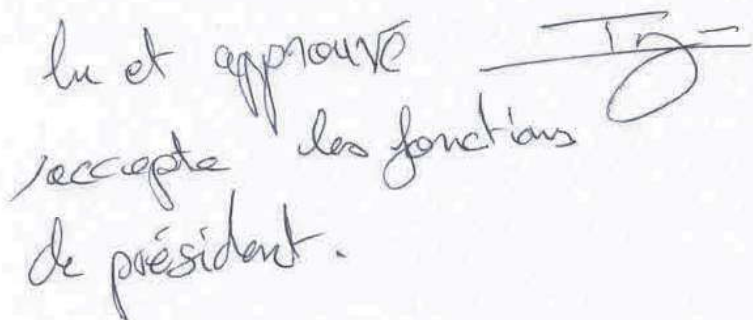 lu et approuvé
j'accepte les fonctions
de président.